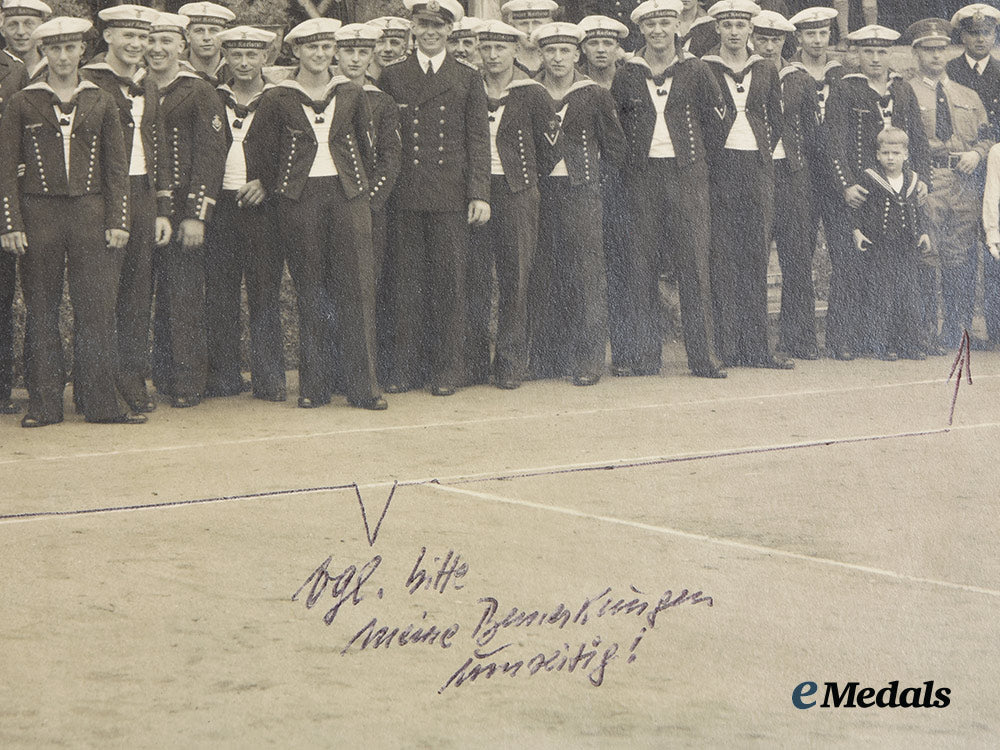 vgl. bitte
meine Bemerkungen
umseitig!
eMedals